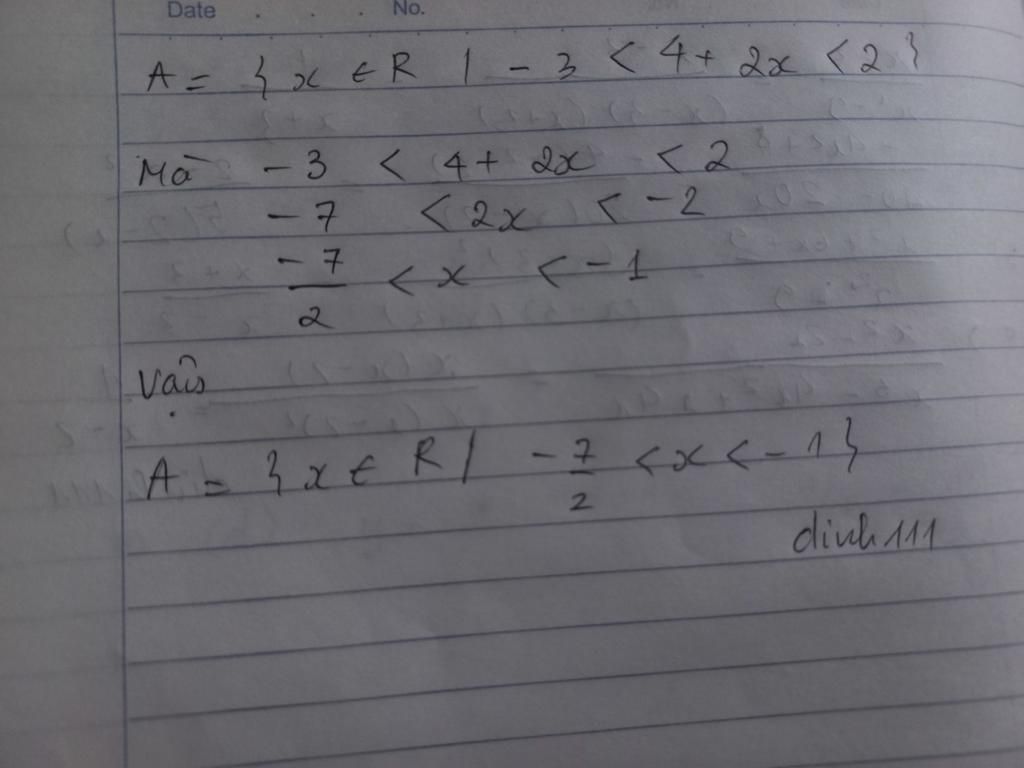 Date . . . . No.
A = { x ∈ R | - 3 < 4 + 2x < 2 }
Mà - 3 < 4 + 2x < 2
- 7 < 2x < - 2
- 7/2 < x < - 1
A = { x ∈ R | - 7/2 < x < - 1 }
dinh111